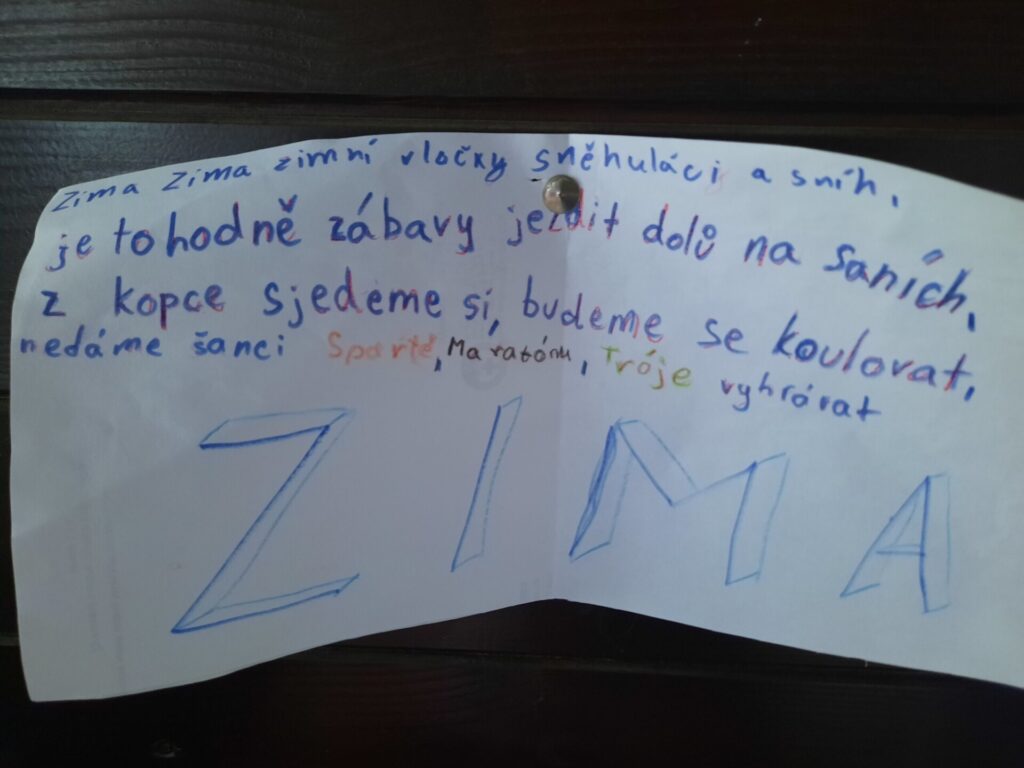 Zima Zima zimní vločky sněhuláci a sníh,
je to hodně zábavy jezdit dolů na saních,
z kopce sjedeme si, budeme se koulovat,
nedáme šanci Spartě, Maratónu, Tróje vyhrávat
ZIMA